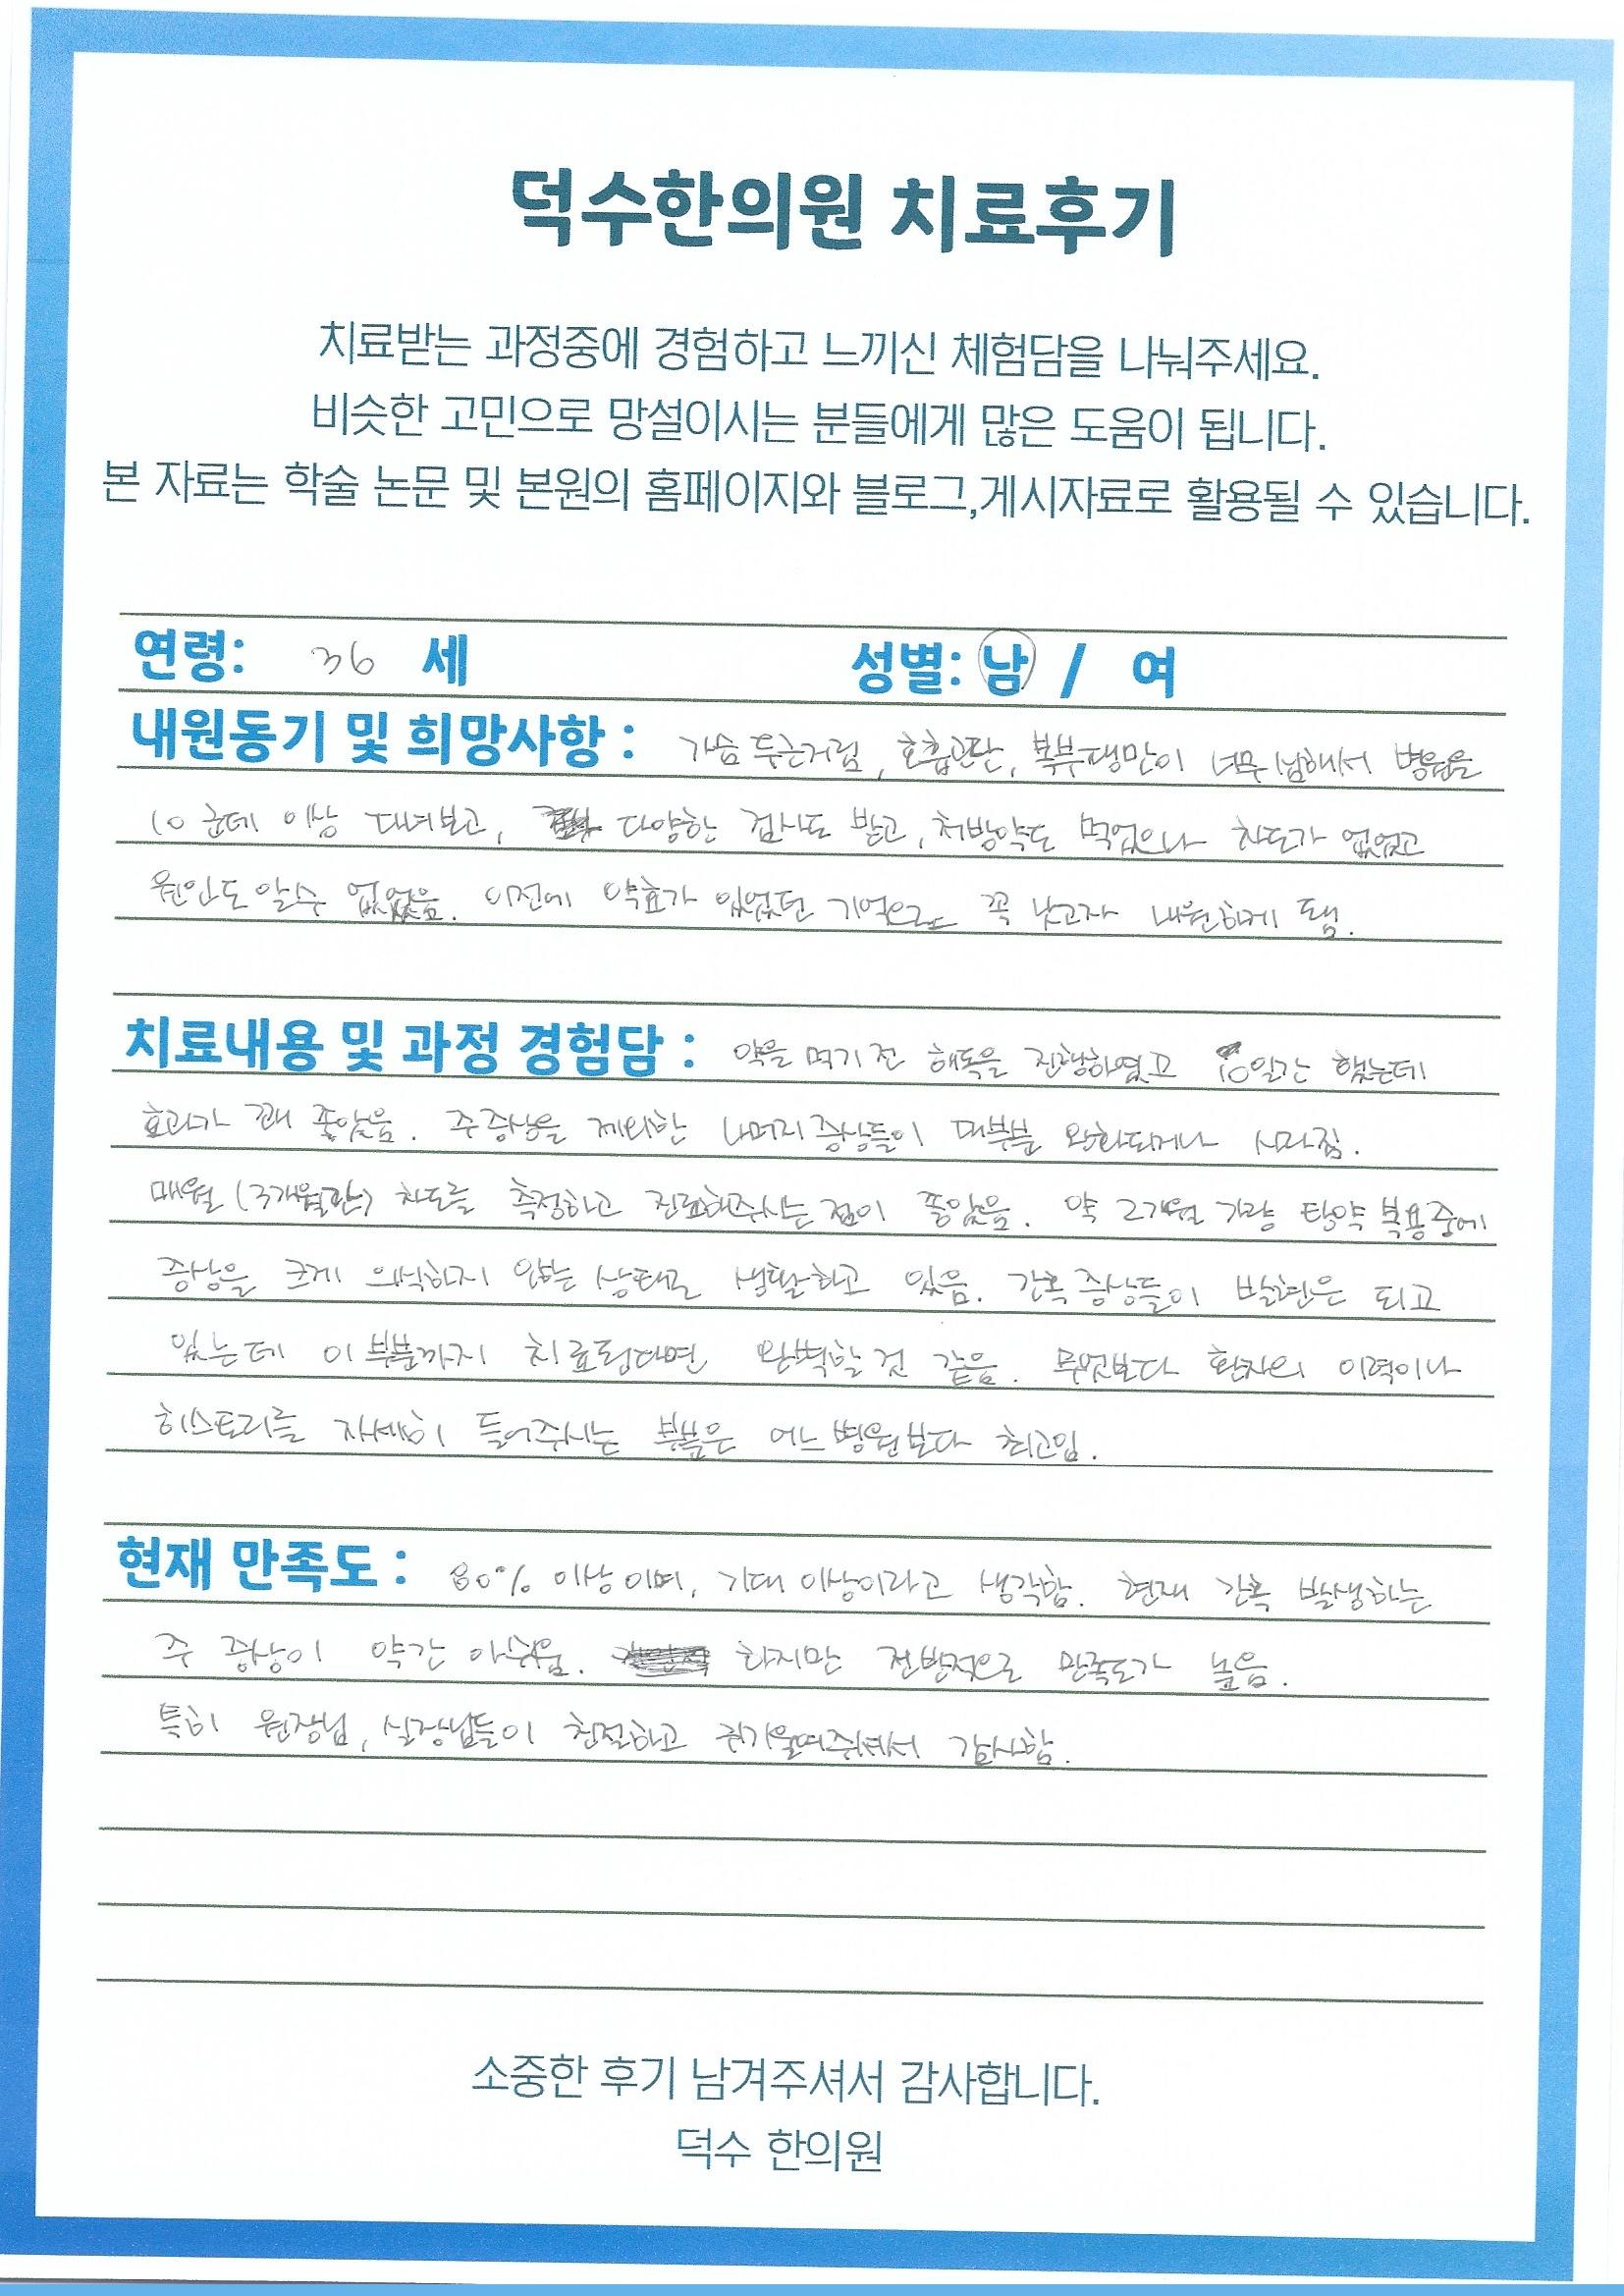 덕수한의원 치료후기
치료받는 과정중에 경험하고 느끼신 체험담을 나눠주세요.
비슷한 고민으로 망설이시는 분들에게 많은 도움이 됩니다.
본 자료는 학술 논문 및 본원의 홈페이지와 블로그,게시자료로 활용될 수 있습니다.
연령: 36 세 성별: 남 / 여
내원동기 및 희망사항 : 가슴 두근거림, 호흡곤란, 복부팽만이 너무 심해서 병원을
10군데 이상 다녀보고, 다양한 검사도 받고, 처방약도 먹었으나 차도가 없었고
원인도 알수 없었음. 이전에 약효가 있었던 기억으로 꼭 낫고자 내원하게 됨.
치료내용 및 과정 경험담 : 약을 먹기 전 해독을 진행하였고 10일간 했는데
효과가 꽤 좋았음. 주증상을 제외한 나머지 증상들이 대부분 완화되거나 사라짐.
매월 (3개월간) 차도를 측정하고 진료해주시는 점이 좋았음. 약 2개월 가량 탕약 복용중에
증상을 크게 의식하지 않는 상태로 생활하고 있음. 간혹 증상들이 발현은 되고
있는데 이 부분까지 치료된다면 완벽할 것 같음. 무엇보다 환자의 이력이나
히스토리를 자세히 들어주시는 부분은 어느 병원보다 최고임.
현재 만족도 : 80% 이상이며, 기대 이상이라고 생각함. 현재 간혹 발생하는
주 증상이 약간 아쉬움. 하지만 전반적으로 만족도가 높음.
특히 원장님, 실장님들이 친절하고 귀기울여주셔서 감사함.
소중한 후기 남겨주셔서 감사합니다.
덕수 한의원